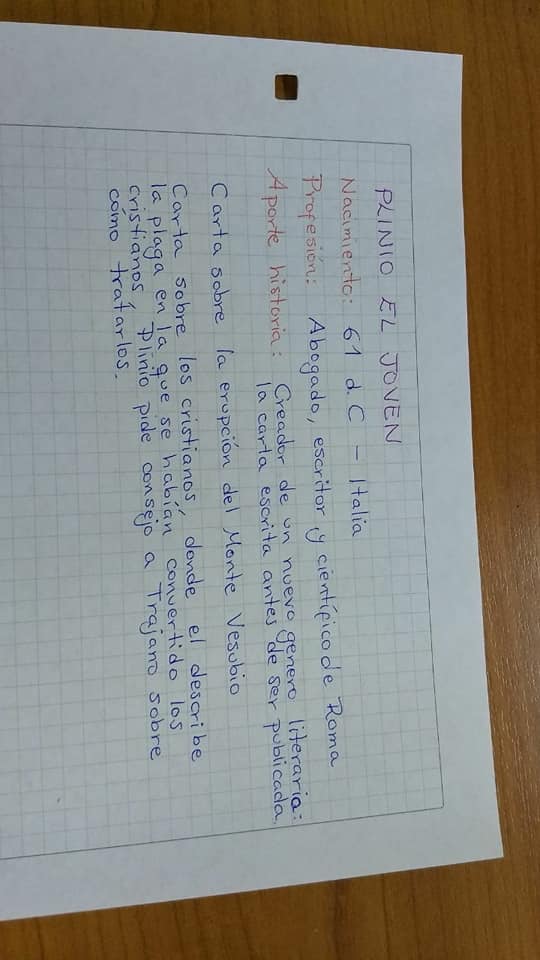 PLINIO EL JOVEN
Nacimiento: 61 d.C - Italia
Profesión: Abogado, escritor y científico de Roma
Aporte historia: Creador de un nuevo genero literaria:
la carta escrita antes de ser publicada.
Carta sobre la erupción del Monte Vesubio
Carta sobre los cristianos, donde el describe
la plaga en la que se habían convertido los
cristianos, Plinio pide consejo a Trajano sobre
como tratarlos.